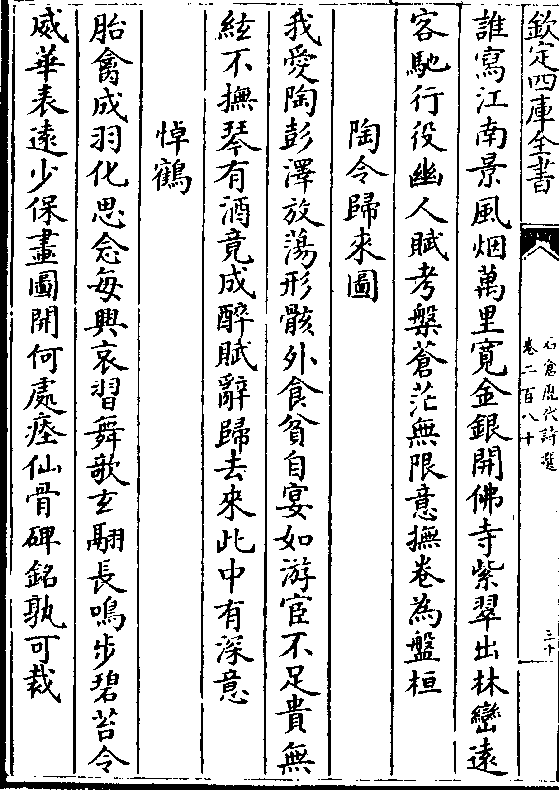 欽定四庫全書
石倉歷代詩選
卷二百八十
三十
誰寫江南景風烟萬里寛金銀開佛寺紫翠出林巒遠
客馳行役幽人賦考槃蒼茫無限意撫卷為盤桓
陶令歸來圖
我愛陶彭澤放蕩形骸外食貧自宴如游宦不足貴無
絃不撫琴有酒竟成醉賦辭歸去來此中有深意
悼鶴
胎禽成羽化思念每興哀習舞歌玄翮長鳴步碧苔令
威華表遠少保畫圖開何處瘞仙骨碑銘孰可裁